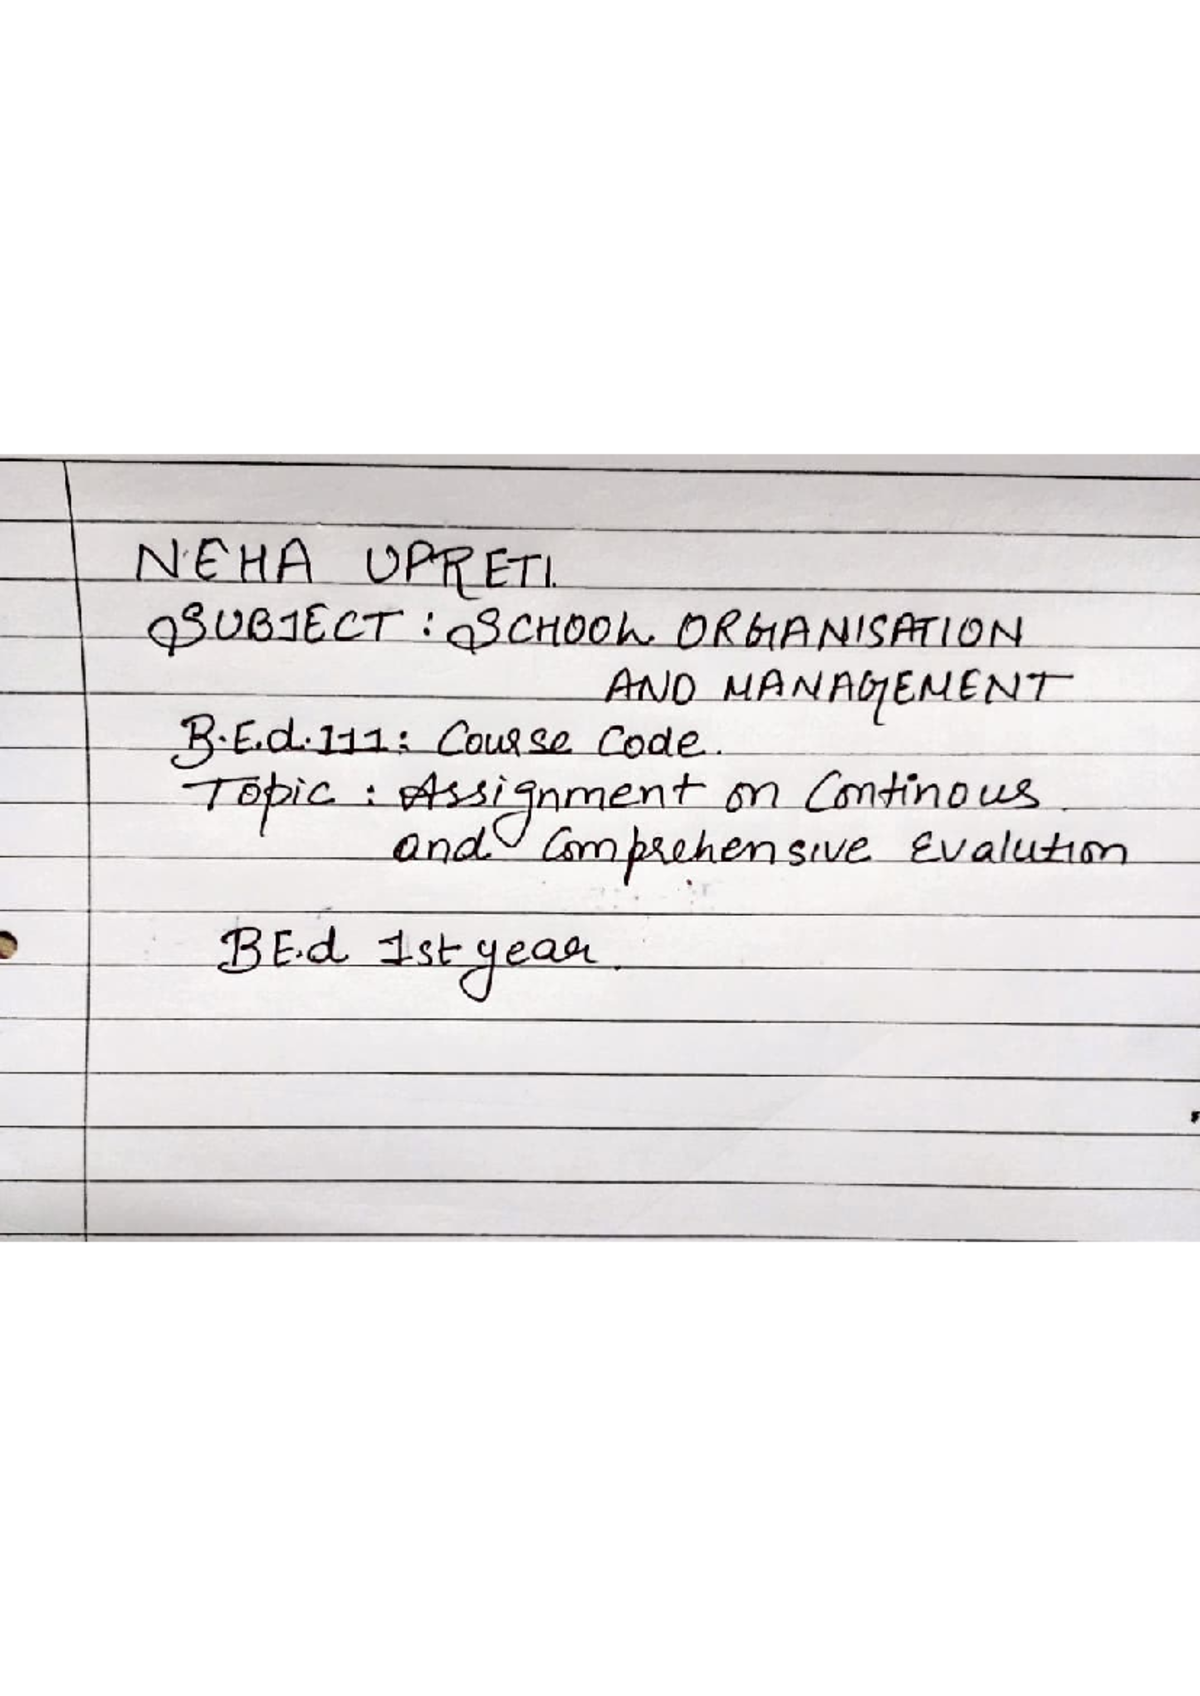 NEHA UPRETI.
SUBJECT : SCHOOL ORGANISATION
AND MANAGEMENT
B.E.d.111: Course Code.
Topic : Assignment on Continous
and Comprehensive Evalution
BE.d 1st year.